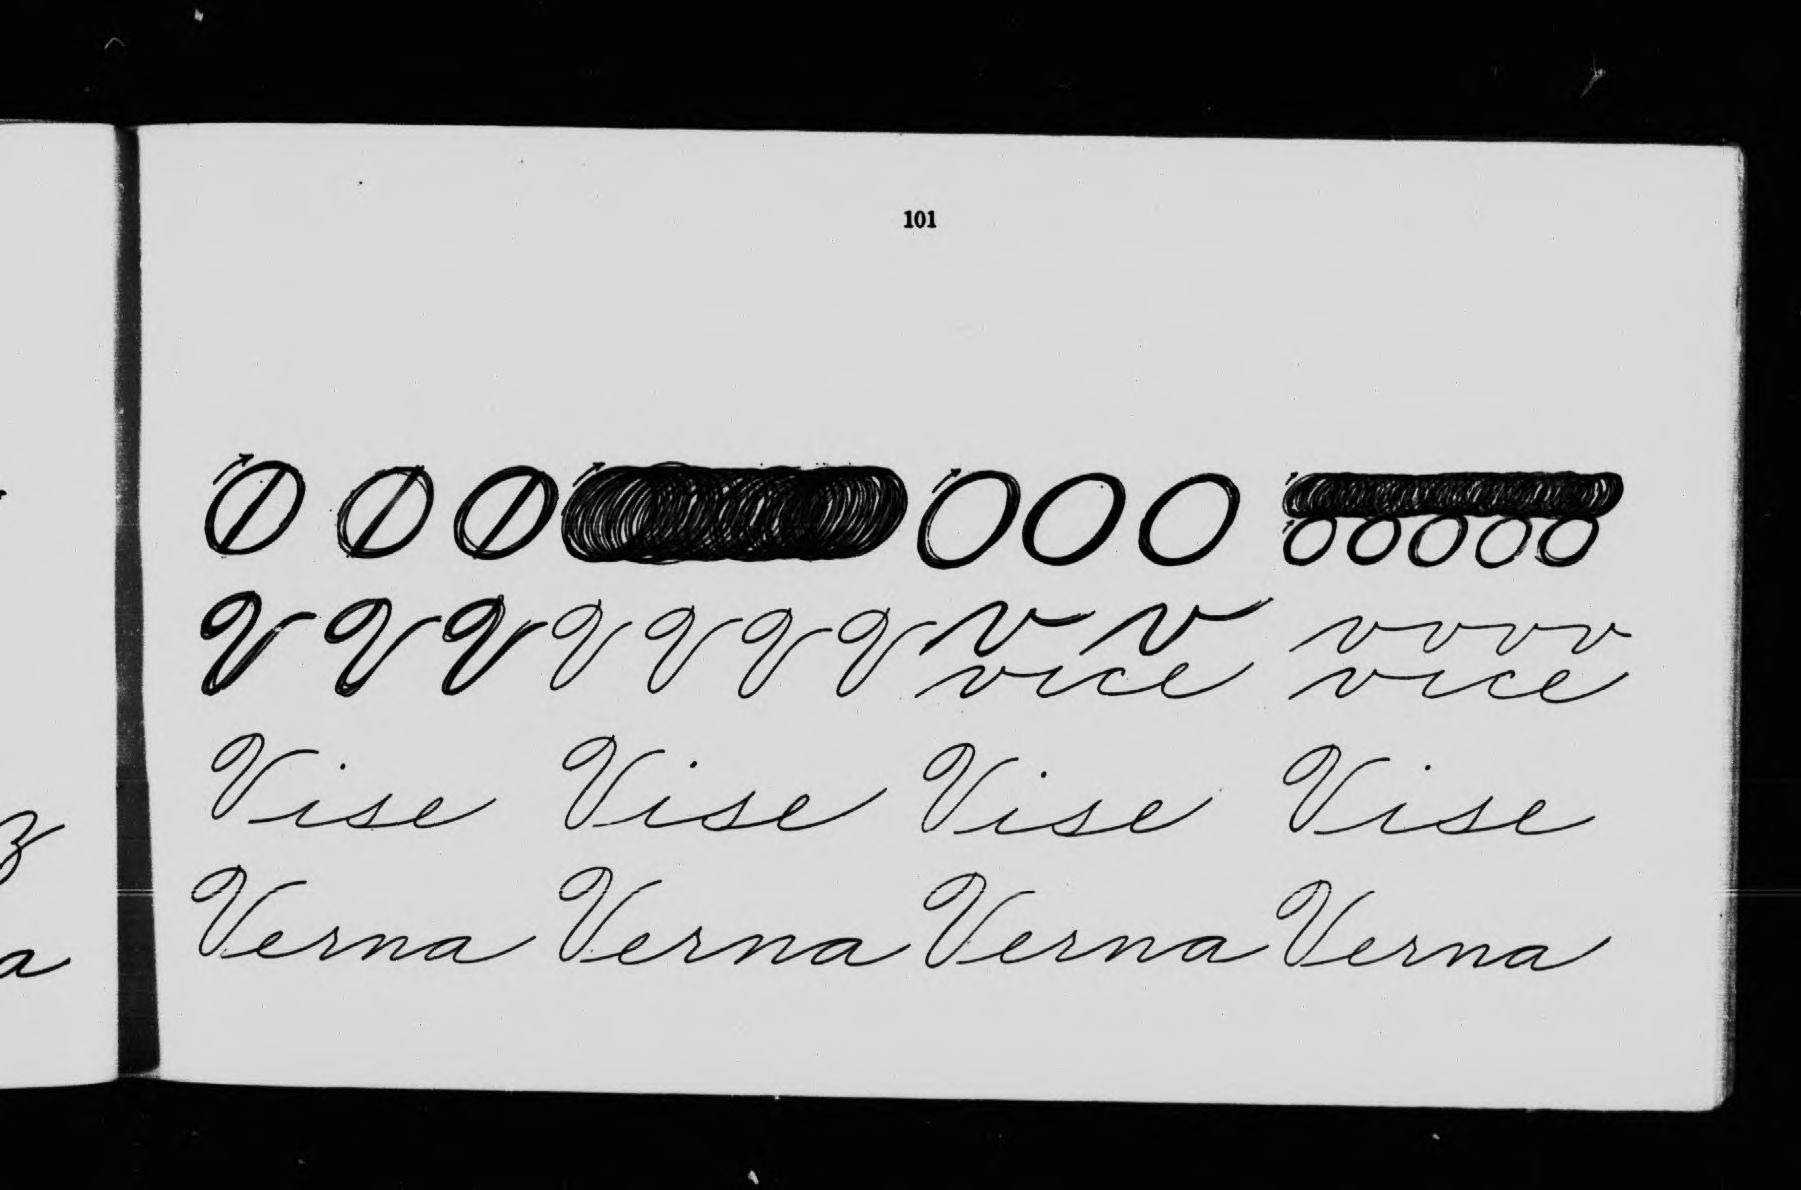 101
V V V V V V V v v v v v v
vice vice
Vise Vise Vise Vise
Verna Verna Verna Verna
z
a